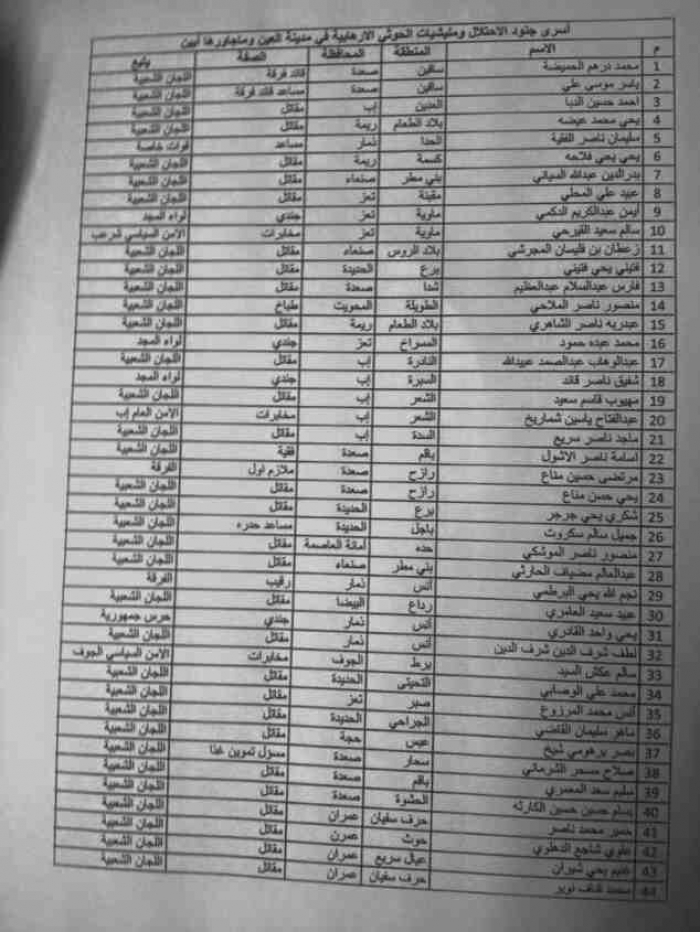 أسرى جنود الاحتلال ومليشيات الحوثي الارهابية في مدينة العين ومتجاورها أبين
م الاسم المنطقة المحافظة الصفة يتبع
1 محمد درهم الحميضة ساقين صعدة قائد فرقة اللجان الشعبية
2 ياسر موسى علي ساقين صعدة مساعد قائد فرقة اللجان الشعبية
3 احمد حسين الدبا إب مقاتل اللجان الشعبية
4 يحي محمد عيضه بلاد الطعام ريمة مقاتل اللجان الشعبية
5 سليمان ناصر الفقية الحدا ذمار مساعد قوات خاصة
6 يحي يحي فلاحه كسمة ريمة مقاتل اللجان الشعبية
7 بدرالدين عبدالله السياني بني مطر صنعاء مقاتل اللجان الشعبية
8 عبيد علي المحلي مقبنة تعز مقاتل اللجان الشعبية
9 أيمن عبدالكريم الدكمي ماوية تعز جندي لواء المجد
10 سالم سعيد القيرحي ماوية تعز مخابرات الامن السياسي شرعب
11 زعطان بن فليسان المجرشي بلاد الروس صنعاء مقاتل اللجان الشعبية
12 فتيني يحي فتيني برع الحديدة مقاتل اللجان الشعبية
13 فارس عبدالسلام عبدالعظيم شدا صعدة مقاتل اللجان الشعبية
14 منصور ناصر الملاحي الطويلة المحويت طباخ اللجان الشعبية
15 عبدربه ناصر الشاهري بلاد الطعام ريمة مقاتل اللجان الشعبية
16 محمد عبده حمود المسراخ تعز جندي لواء المجد
17 عبدالوهاب عبدالصمد عبيدالله النادرة إب مقاتل اللجان الشعبية
18 شفيق ناصر قائد السبرة إب جندي لواء المجد
19 مهيوب قاسم سعيد الشعر إب مقاتل اللجان الشعبية
20 عبدالفتاح ياسين شماريخ الشعر إب مخابرات الامن العام إب
21 ماجد ناصر سريع السدة إب مقاتل اللجان الشعبية
22 اسامة ناصر الاشول باقم صعدة فقية اللجان الشعبية
23 مرتضى حسين مناع رازح صعدة ملازم اول الفرقة
24 يحي حسن مناع رازح صعدة مقاتل اللجان الشعبية
25 شكري يحي جرجر برع الحديدة مقاتل اللجان الشعبية
26 جميل سالم سكروت باجل الحديدة مساعد اللجان الشعبية
27 منصور ناصر الموشكي حده امانة العاصمة مقاتل اللجان الشعبية
28 عبدالعالم مضياف الحارثي بني مطر صنعاء مقاتل اللجان الشعبية
29 نجم الله يحي البرطمي آنس ذمار رقيب الفرقة
30 عبيد سعيد العامري رداع البيضا مقاتل اللجان الشعبية
31 يحي واحد القادري آنس ذمار جندي حرس جمهورية
32 لطف شرف الدين شرف الدين آنس ذمار مقاتل اللجان الشعبية
33 سالم عكش السيد برط الجوف مخابرات الامن السياسي الجوف
34 محمد علي الوصابي التحيتى الحديدة مقاتل اللجان الشعبية
35 أنس محمد المرزوع صبر تعز مقاتل اللجان الشعبية
36 ماهر سليمان القاضي الجراحي الحديدة مقاتل اللجان الشعبية
37 شيخ عبس حجة مقاتل اللجان الشعبية
38 صلاح مسحر الشرماني سحار صعدة اللجان الشعبية
39 سليم سعد المعمري باقم صعدة مقاتل اللجان الشعبية
40 بسام حسين حسين الكارثه الحشوة صعدة مقاتل اللجان الشعبية
41 حمير محمد ناصر حرف سفيان عمران مقاتل اللجان الشعبية
42 علوي شاجع الدهلوي حوث عمرن مقاتل اللجان الشعبية
43 يحي شيران عيال سريع عمران مقاتل اللجان الشعبية
44 محمد حرف سفيان عمران مقاتل اللجان الشعبية